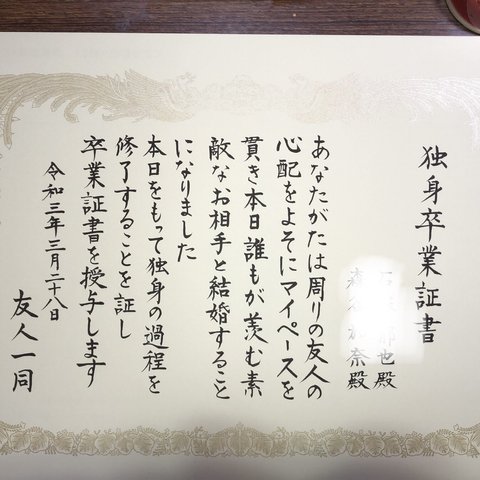 独身卒業証書
也殿
奈殿
あなたがたは周りの友人の
心配をよそにマイペースを
貫き本日誰もが羨む素
敵なお相手と結婚すること
になりました
本日をもって独身の過程を
修了することを証し
卒業証書を授与します
令和三年三月二十八日
友人一同